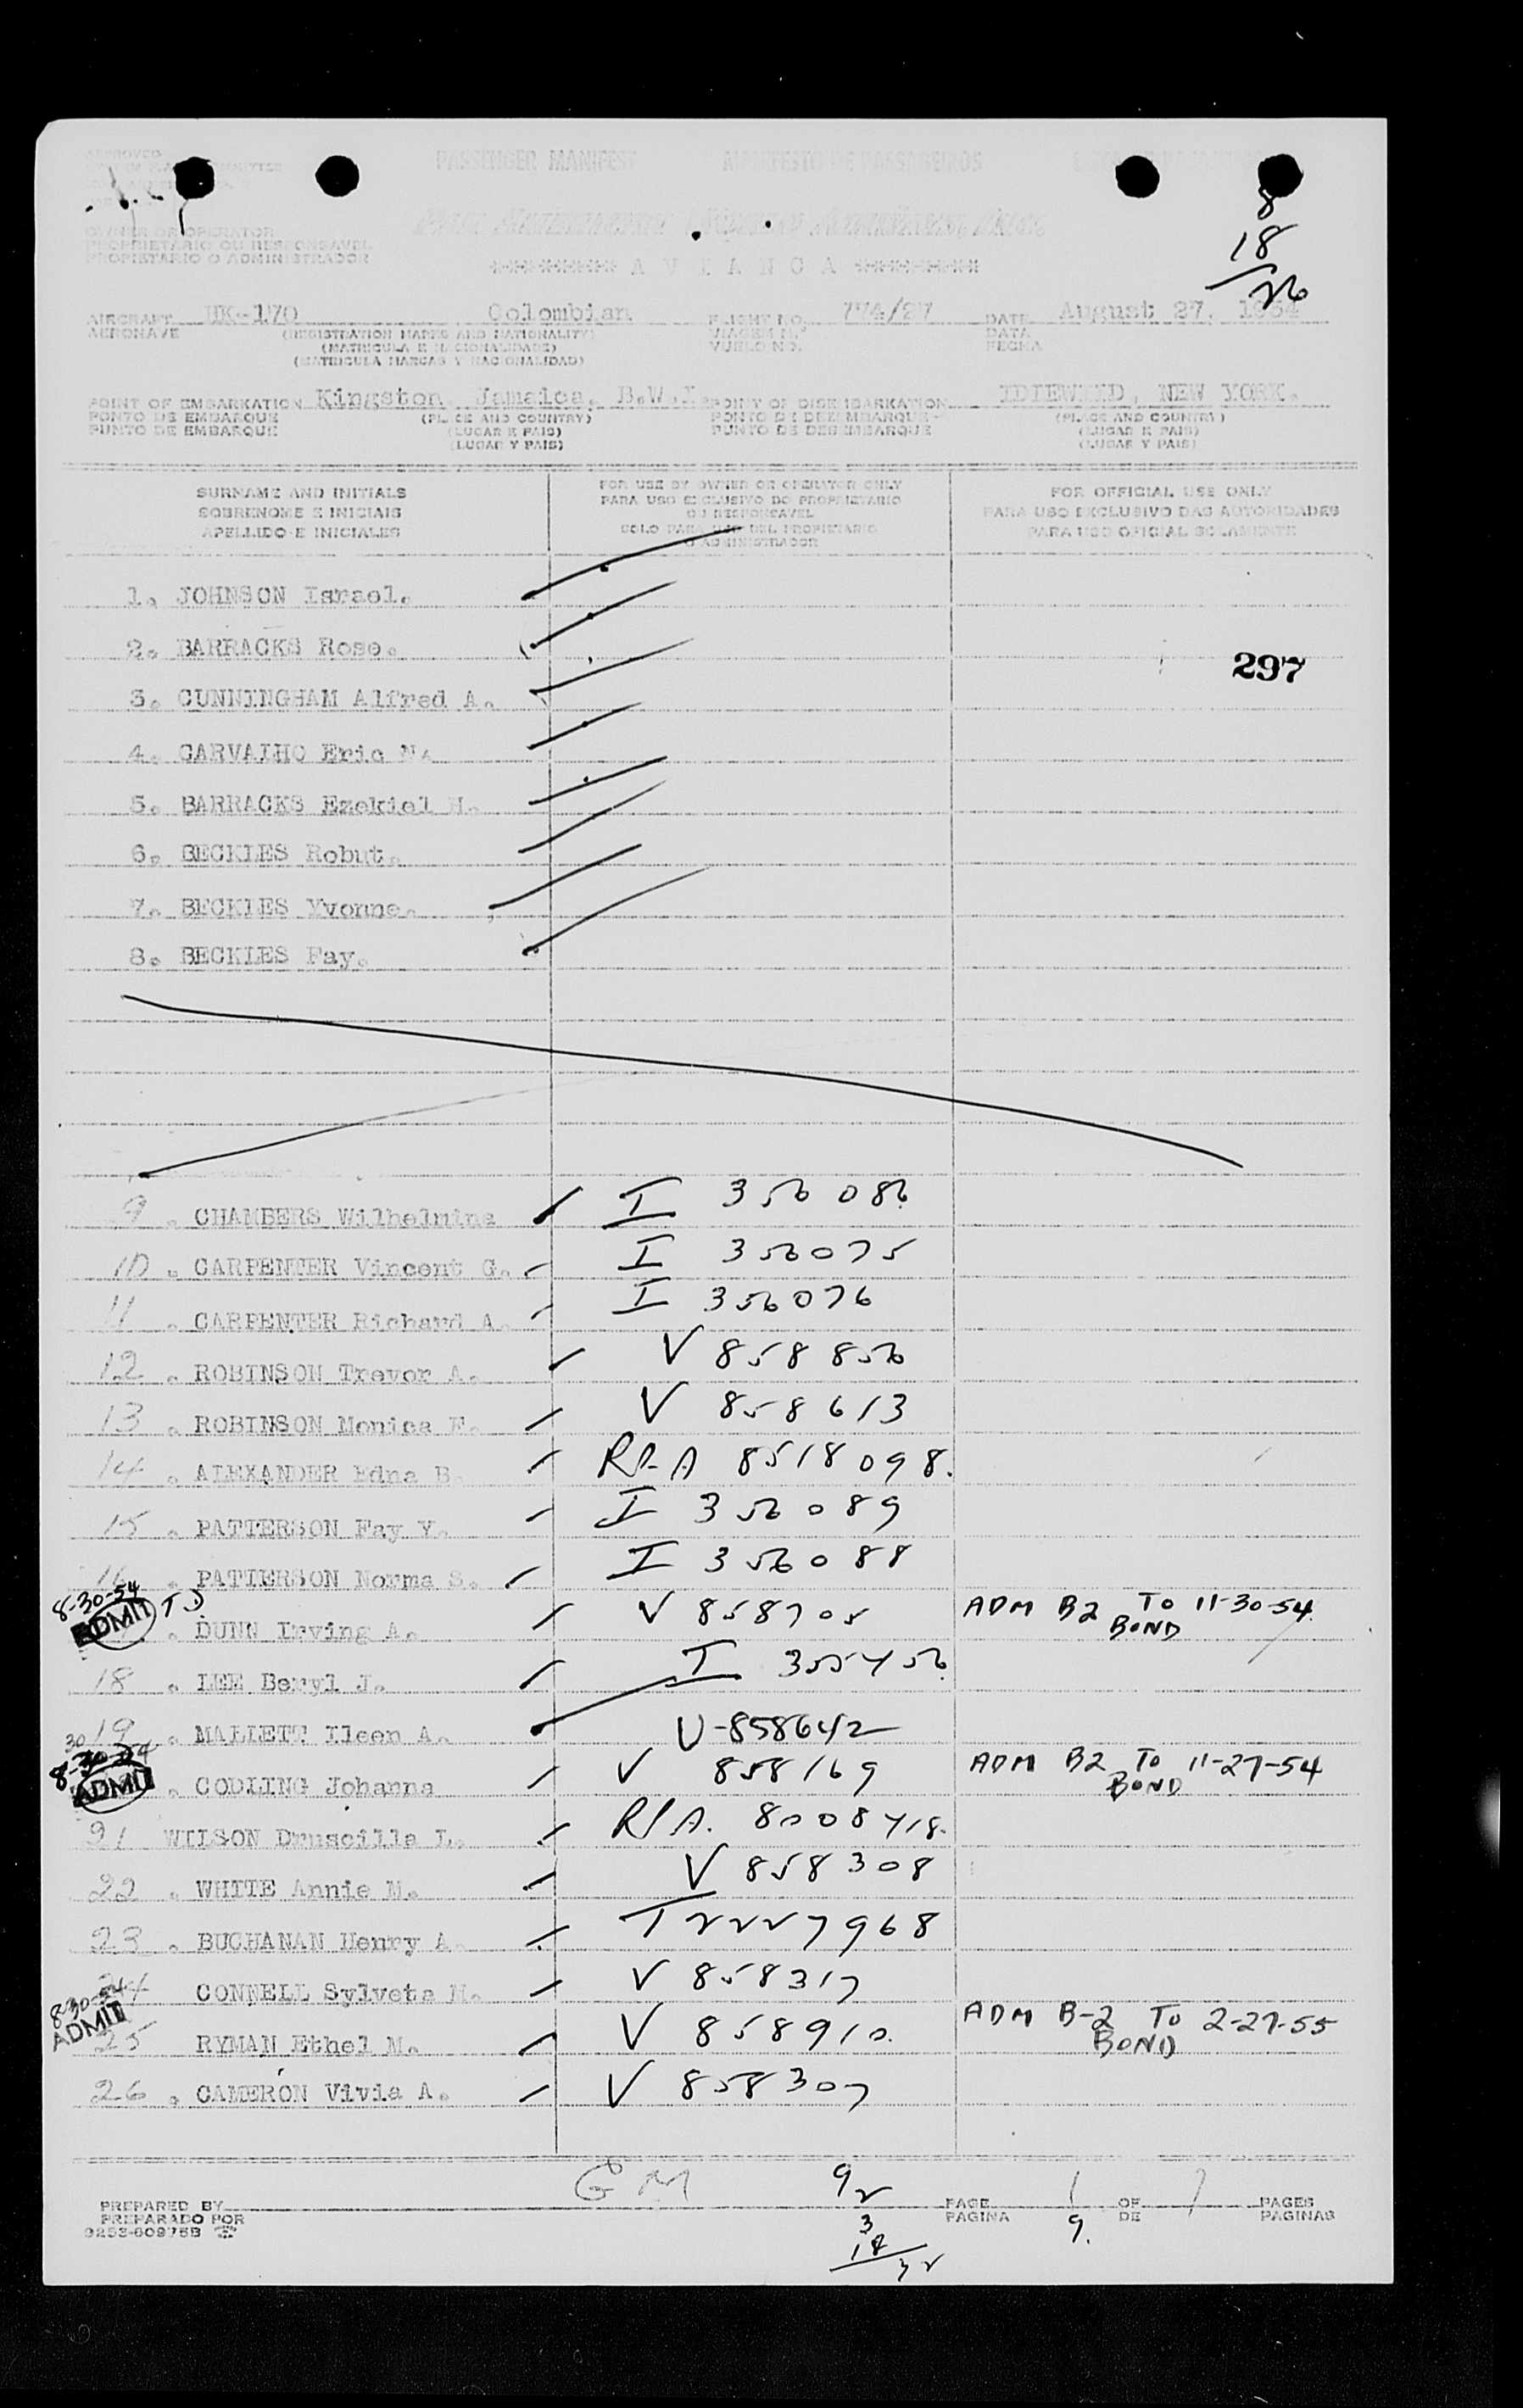 PASSENGER MANIFEST MANIFESTO DE PASSAGEIROS
8
18
26
OWNER OR OPERATOR
PROPRIETARIO OU RESPONSAVEL
PROPIETARIO O ADMINISTRADOR
********* A V I A N C A *********
AIRCRAFT HK-170 Colombian FLIGHT NO. 774/27 DATE August 27, 1954
AERONAVE (REGISTRATION MARKS AND NATIONALITY) VIAGEM N.º DATA
(MATRICULA E NACIONALIDADE) VUELO NO. FECHA
(MATRICULA MARCAS Y NACIONALIDAD)
POINT OF EMBARKATION Kingston Jamaica, B.W.I. POINT OF DISEMBARKATION IDLEWILD, NEW YORK.
PONTO DE EMBARQUE (PLACE AND COUNTRY) PONTO DE DESEMBARQUE (PLACE AND COUNTRY)
PUNTO DE EMBARQUE (LUGAR E PAIS) PUNTO DE DESEMBARQUE (LUGAR E PAIS)
(LUGAR Y PAIS) (LUGAR Y PAIS)
SURNAME AND INITIALS
SOBRENOME E INICIAIS
APELLIDO E INICIALES
FOR USE BY OWNER OR OPERATOR ONLY
PARA USO EXCLUSIVO DO PROPRIETARIO
OU RESPONSAVEL
SOLO PARA USO DEL PROPIETARIO
O ADMINISTRADOR
FOR OFFICIAL USE ONLY
PARA USO EXCLUSIVO DAS AUTORIDADES
PARA USO OFICIAL SOLAMENTE
1. JOHNSON Israel.
2. BARRACKS Rose.
297
3. CUNNINGHAM Alfred A.
4. CARVALHO Eric N.
5. BARRACKS Ezekiel H.
6. BECKLES Robut.
7. BECKLES Yvonne.
8. BECKLES Fay.
9. CHAMBERS Wilhelmina I 356086
10. CARPENTER Vincent G. I 356075
11. CARPENTER Richard A. I 356076
12. ROBINSON Trevor A. V 858856
13. ROBINSON Monica F. V 858613
14. ALEXANDER Edna B. 8518098.
15. PATTERSON Fay V. I 356089
16. PATTERSON Norma S. I 356088
8-30-54
ADMIT . DUNN Irving A. V 858705 ADM B2 TO 11-30-54
BOND
18. LEE Beryl J. I 355456
19. MALLETT Ileen A. V-858642
8-30-54
ADMIT . CODLING Johanna V 858169 ADM B2 TO 11-27-54
BOND
21 WILSON Druscilla L. 8008418.
22. WHITE Annie M. V 858308
23. BUCHANAN Henry A. T2227968
24 CONNELL Sylveta M. V 858317
8-30-54
ADMIT
25 RYMAN Ethel M. V 858910. ADM B-2 TO 2-27-55
BOND
26. CAMERON Vivia A. V 858307
GM
92
3
18
PREPARED BY PAGE 1 OF PAGES
PREPARADO POR PAGINA 9. DE PAGINAS
9253-60975B